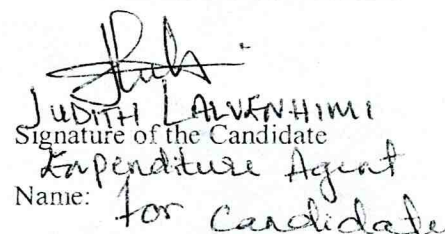 JUDITH LALVENHIMI
Signature of the Candidate
Expenditure Agent
Name: for Candidate